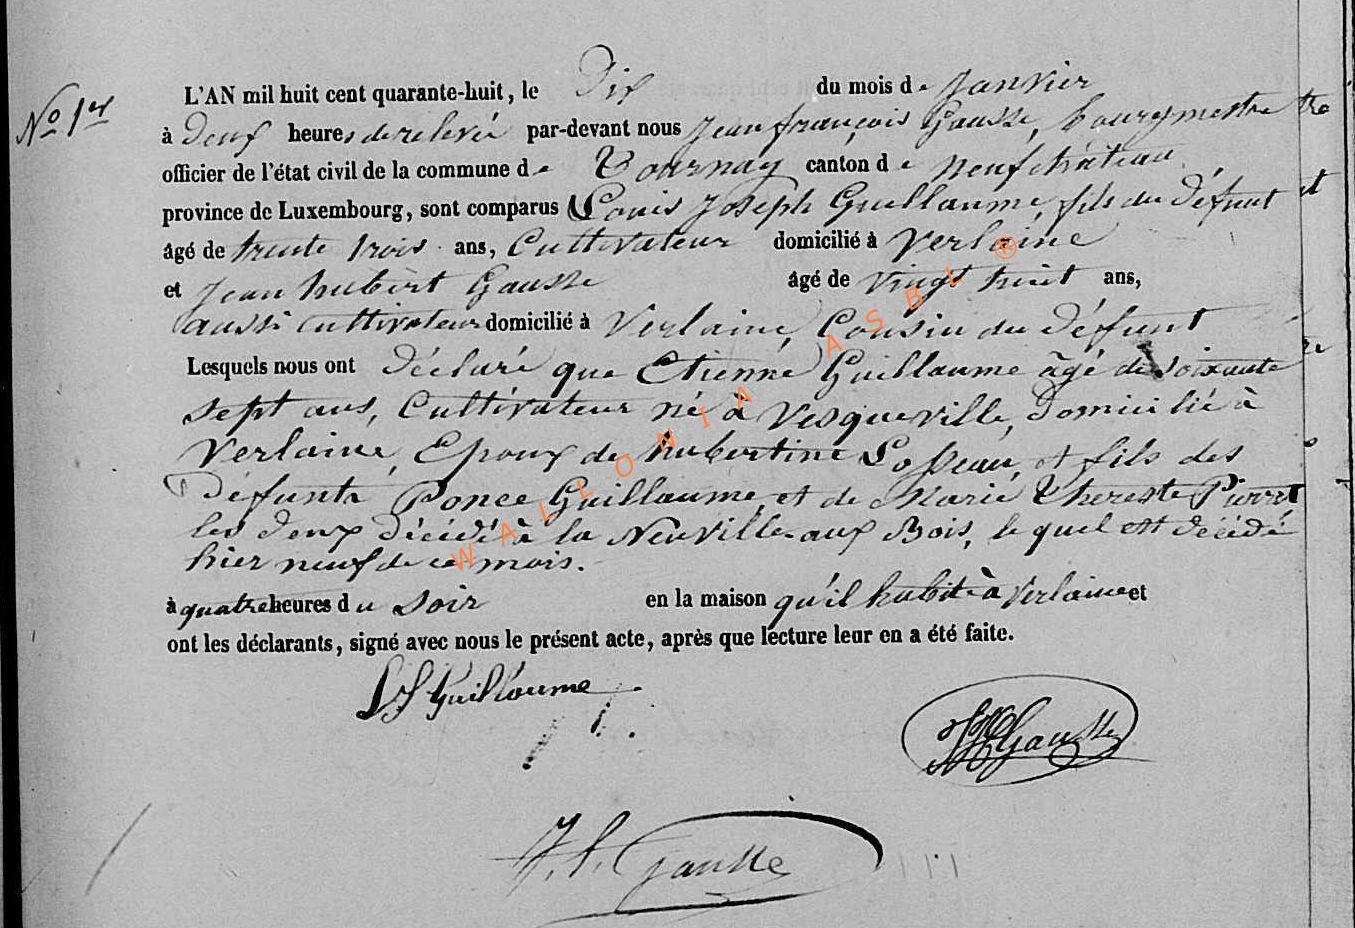 No 1er
L'AN mil huit cent quarante-huit, le Dix du mois de Janvier
à Deux heures de relevée par-devant nous Jean françois Gausse, bourgmestre
officier de l'état civil de la commune de Tournay canton de neufchâteau
province de Luxembourg, sont comparus Louis Joseph Guillaume, fils du défunt
âgé de trente trois ans, Cultivateur domicilié à Verlaine
et Jean hubert Gausse âgé de vingt huit ans,
aussi cultivateur domicilié à Verlaine, Cousin du défunt
Lesquels nous ont déclaré que Etienne Guillaume âgé de soixante
sept ans, Cultivateur né à Vesqueville, Domicilié à
Verlaine, Epoux de hubertine Losseau, et fils des
Défunts Ponce Guillaume, et de Marie Thereste Pierret
les deux décédé à la Neuville-aux Bois, le quel est décédé
hier neuf de ce mois.
à quatre heures du soir en la maison qu'il habite à Verlaine et
ont les déclarants, signé avec nous le présent acte, après que lecture leur en a été faite.
LJ Guillaume
JH Gausse
J. f. Gausse
WALLONIA ASBL ®